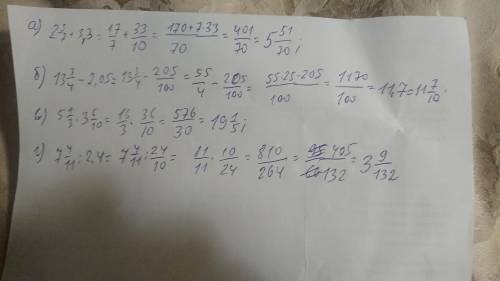 а) 2 3/7 + 3,3 = 17/7 + 33/10 = (170+7·33)/70 = 401/70 = 5 51/70;
б) 13 3/4 - 2,05 = 13 3/4 - 205/100 = 55/4 - 205/100 = (55·25-205)/100 = 1170/100 = 11,7 = 11 7/10.
в) 5 1/3 · 3 6/10 = 16/3 · 36/10 = 576/30 = 19 1/5;
г) 7 4/11 : 2,4 = 7 4/11 : 24/10 = 81/11 · 10/24 = 810/264 = 405/132 = 3 9/132